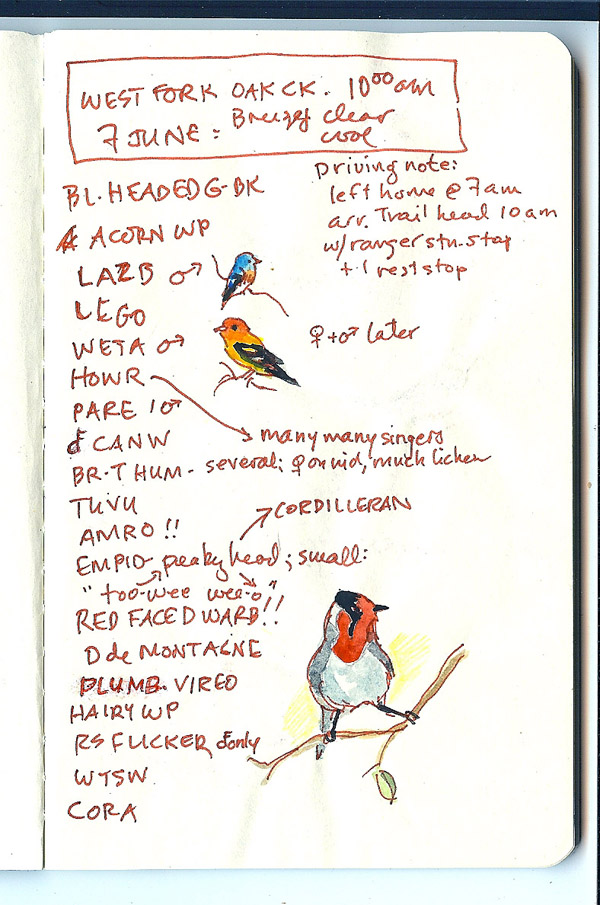 WEST FORK OAK CK. 10⁰⁰ am
7 JUNE: Breezy clear
cool
Driving note:
left home @ 7am
arr. Trail head 10am
w/ranger stn. stop
+ 1 rest stop
BL. HEADED G-BK
ACORN WP
LAZB ♂
LEGO
WETA ♂
♀+♂ later
HOWR
PARE 1♂
many many singers
CANW
BR-T HUM - several; ♀ on nid, much lichen
TUVU
AMRO !!
CORDILLERAN
EMPID - peaky head; small:
"too-wee wee-o"
RED FACED WARB!!
D de MONTAGNE
PLUMB. VIREO
HAIRY WP
RS FLICKER, only
WTSW
CORA